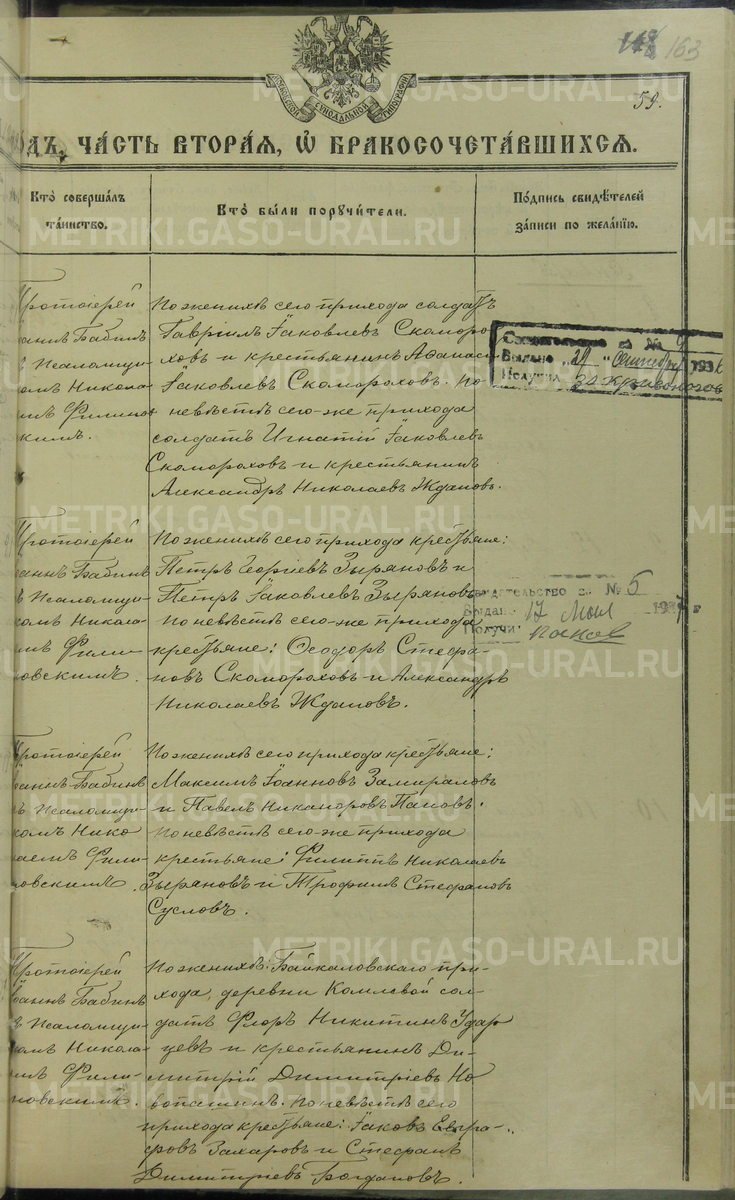 163
59.
СѴНОДАЛЬНОЙ ТИПОГРАФІИ
ЧАСТЬ ВТОРАЯ, Ѡ БРАКОСОЧЕТАВШИХСЯ.
Кто совершалъ
таинство.
Кто были поручители.
Подпись свидѣтелей
записи по желанію.
Протоіерей
аннъ Бабинъ
ъ Псаломщи-
омъ Никола-
мъ Филипов
скимъ.
По женихѣ сего прихода солдатъ
Гавріилъ Іаковлевъ Скоморо-
ховъ и крестьянинъ Аѳанасій
Іаковлевъ Скомороховъ. По
невѣстѣ сего-же прихода
солдатъ Игнатій Іаковлевъ
Скомороховъ и крестьянинъ
Александръ Николаевъ Ждановъ.
Выдано „29"
Получил
Протоіерей
аннъ Бабинъ
ъ Псаломщи-
комъ Никола-
мъ Фили-
повскимъ.
По женихѣ сего прихода крестьяне:
Петръ Георгіевъ Зыряновъ и
Петръ Іаковлевъ Зыряновъ.
По невѣстѣ сего-же прихода
крестьяне: Ѳеодоръ Стефа-
новъ Скомороховъ и Александръ
Николаевъ Ждановъ.
идетельство за № 5
Выдано 17 Мая 1937 г
Получи Панов
Протоіерей
оаннъ Бабинъ
ъ Псаломщи-
комъ Нико
лаемъ Фили-
повскимъ.
По женихѣ сего прихода крестьяне:
Максимъ Іоанновъ Замираловъ
и Павелъ Никаноровъ Пановъ.
По невѣстѣ сего-же прихода
крестьяне: Филиппъ Николаевъ
Зыряновъ и Трофимъ Стефановъ
Сусловъ.
Протоіерей
оаннъ Бабинъ
ъ Псаломщи-
комъ Никола-
мъ Фили-
повскимъ.
По женихѣ: Байкаловскаго при-
хода, деревни Комлевой сол-
датъ Флоръ Никитинъ Удар
цевъ и крестьянинъ Ди-
митрій Димитріевъ Но
вопашинъ. По невѣстѣ сего
прихода крестьяне: Іаковъ Евгра-
фовъ Захаровъ и Стефанъ
Димитріевъ Богдановъ.
METRIKI.GASO-URAL.RU
METRIKI.GASO-URAL.RU
METRIKI.GASO-URAL.RU
METRIKI.GASO-URAL.RU
METRIKI.GASO-URAL.RU
METRIKI.GASO-URAL.RU
METRIKI.GASO-URAL.RU
METRIKI.GASO-URAL.RU